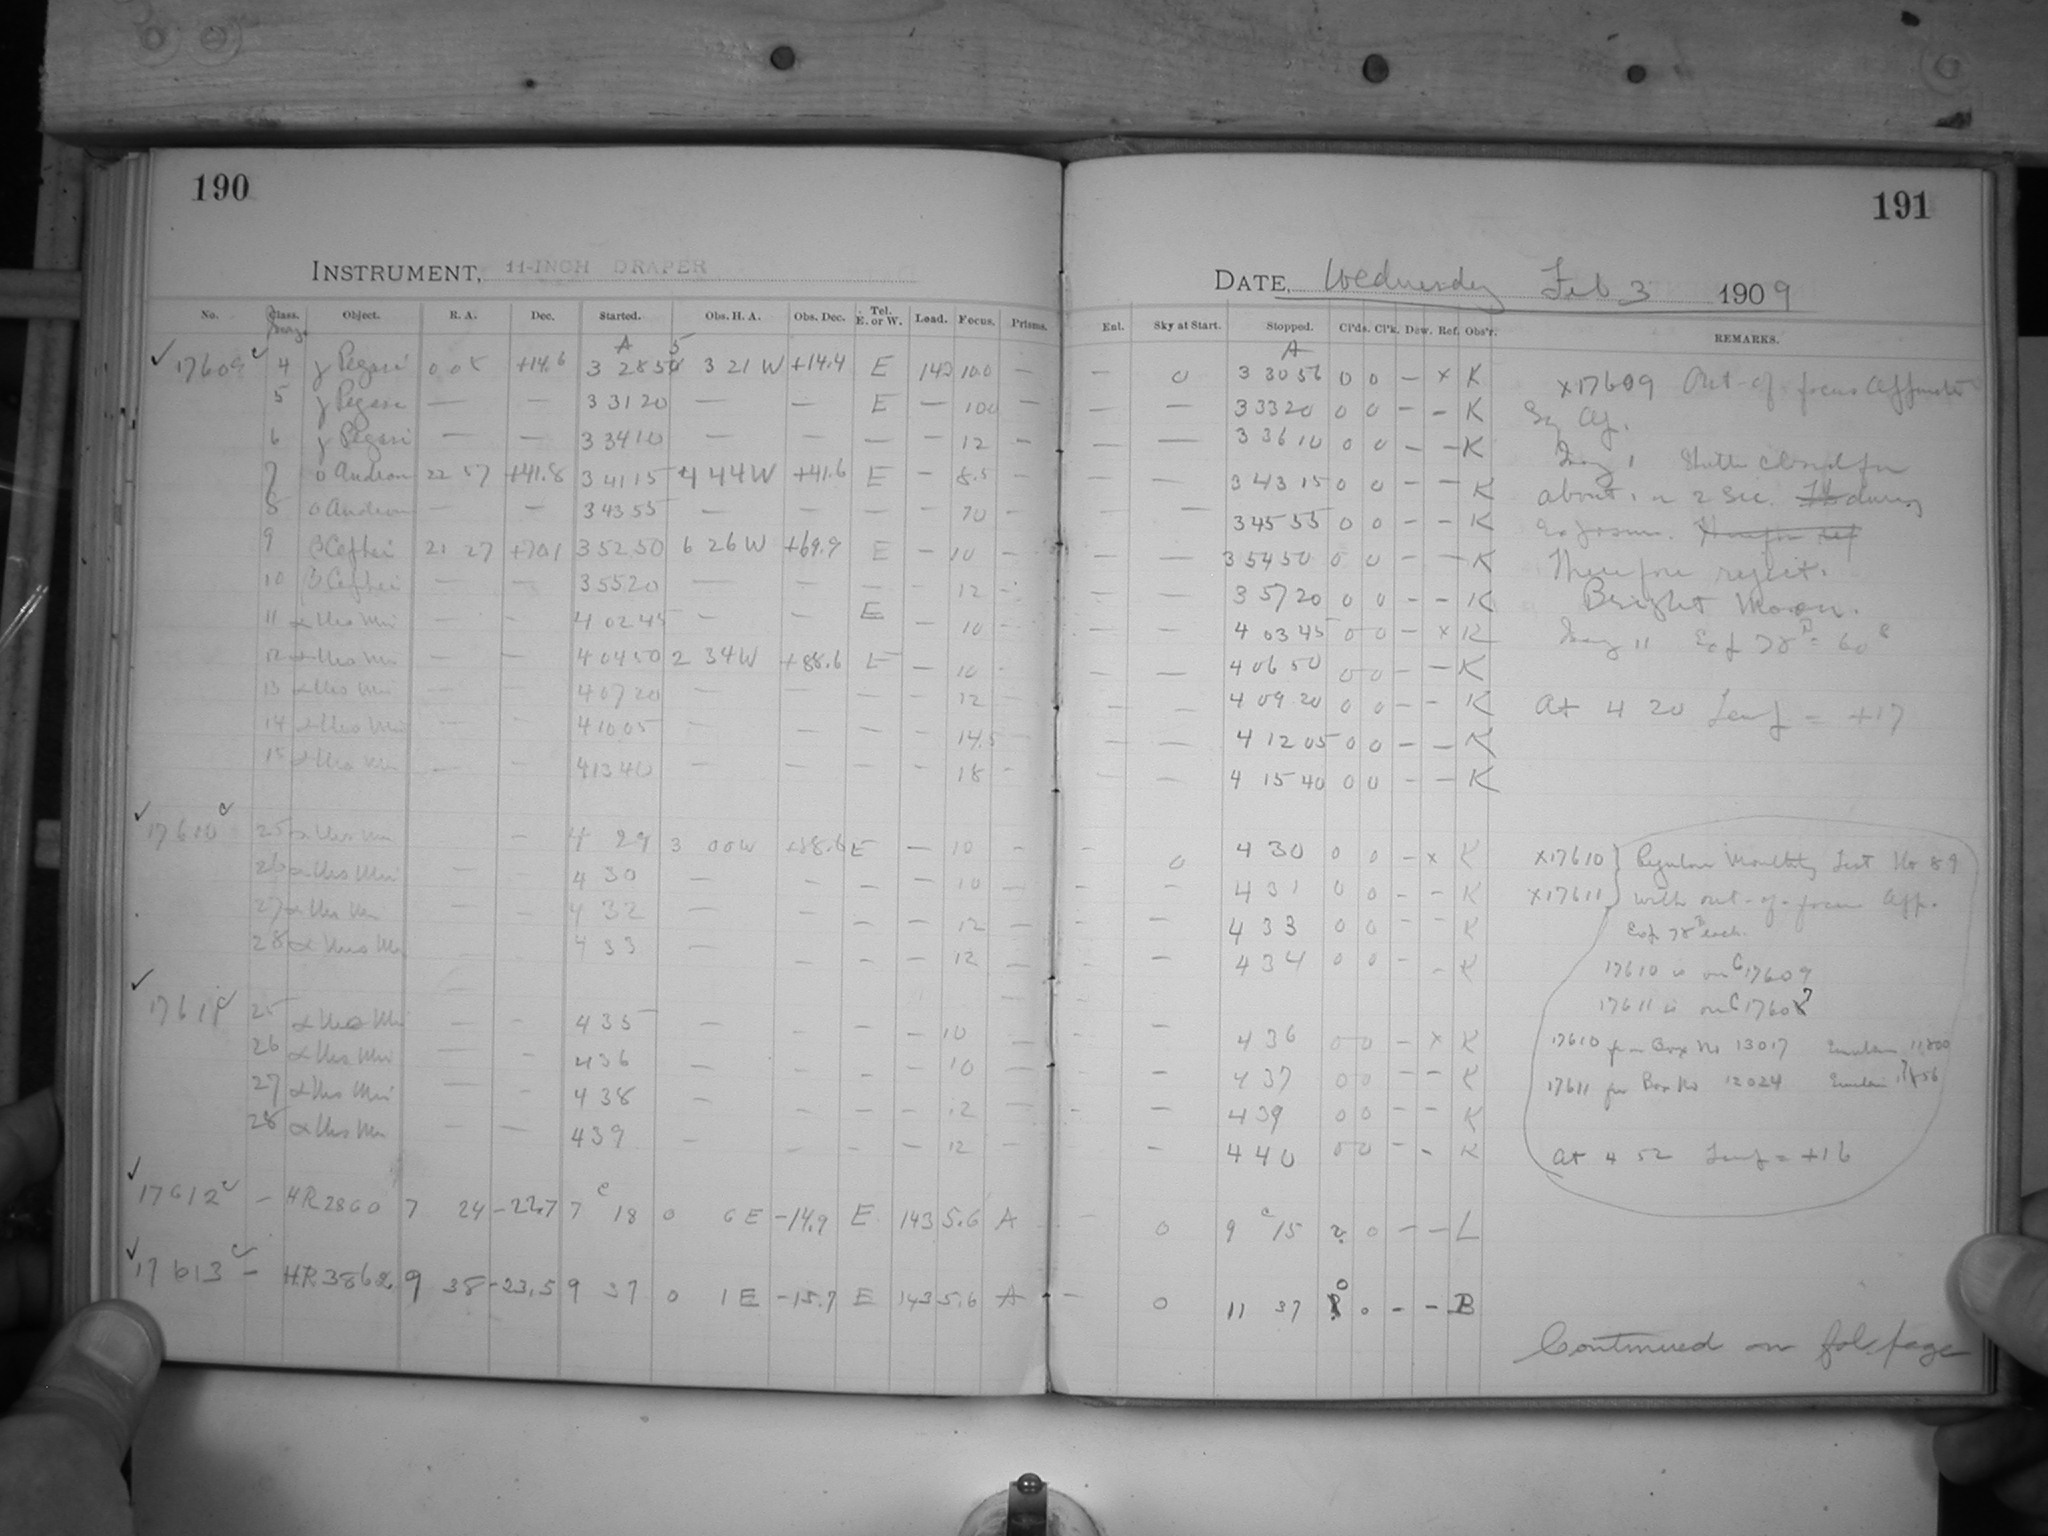 190
INSTRUMENT, 11-INCH DRAPER
No. Class. Object. R. A. Dec. Started. Obs. H. A. Obs. Dec. Tel. E. or W. Load. Focus. Prisms.
A
17609 c 4 γ Pegasi 0 08 +14.6 3 28 3 21 W +14.4 E 143 10.0 —
5 — — 3 31 20 — — E — 100 —
6 γ Pegasi — — 3 34 10 — — — — 12 —
7 o Androm 22 57 +41.8 3 41 15 4 44 W +41.6 E — 8.5 —
8 o Androm — — 3 43 55 — — — — —
9 β Cephei 21 27 +70.1 3 52 50 6 26 W +69.9 E — 10 —
10 β Cephei — — 3 55 20 — — — — 12 —
11 α Urs Min — — 4 02 45 — — E — 10 —
12 α Urs Min — — 4 04 50 2 34 W +88.6 E — 10 -
13 α Urs Min — — 4 07 20 — — — — 12 —
14 α Urs Min — — 4 10 05 — — — — 14.5 —
15 α Urs Min — — 4 13 40 — — — — 18 —
17610 c 25 α Urs Min — 4 29 3 00 W +88.6 E — 10 —
26 α Urs Min — — 4 30 — — — — 10 —
27 α Urs Min — — 4 32 — — — — 12 —
28 α Urs Min — — 4 33 — — — — 12 —
17611 c 25 α Urs Min — — 4 35 — — — — 10 —
26 α Urs Min — — 4 36 — — — — 10 —
27 α Urs Min — — 4 38 — — — — 12 —
28 α Urs Min — — 4 39 — — — — 12 —
17612 c — HR 2860 7 24 -22.7 7 c 18 0 6 E -14.9 E 143 5.6 A
17613 c — HR 3862 9 38 -23.5 9 37 0 1 E -15.7 E 143 5.6 A
191
DATE, Wednesday Feb 3 1909
Enl. Sky at Start. Stopped. Cl'ds. Cl'k. Dew. Ref. Obs'r. REMARKS.
A
— 0 3 30 56 0 0 — x K x17609 Out-of-focus
— — 3 33 20 0 0 — — K
— — 3 36 10 0 0 — — K Shutter closed for
— — 3 43 15 0 0 — — K about 1 or 2 sec. during
— 3 45 55 0 0 — — K Exposure.
— — 3 54 50 0 0 — — K Therefore reject.
— — 3 57 20 0 0 — — K Bright Moon.
— — 4 03 45 0 0 — x K
— — 4 06 50 0 0 — — K
— — 4 09 20 0 0 — — K At 4 20 Temp = +17
— — 4 12 05 0 0 — — K
— — 4 15 40 0 0 — — K
— 0 4 30 0 0 — x K x17610 } Regular Monthly Test No 89
— — 4 31 0 0 — — K x17611 } with out-of-focus App.
— — 4 33 0 0 — — K each.
— — 4 34 0 0 — — K 17610 is on C17609
17611 is on
— — 4 36 0 0 — x K 17610 from Box No 13017 Emulsion 11800
— — 4 37 0 0 — — K 17611 from Box No 12024 Emulsion
— — 4 39 0 0 — — K
— — 4 40 0 0 — — K At 4 52 Temp = +16
— 0 9 c 15 2 0 — — L
— 0 11 37 0 0 — — B
Continued on fol. page